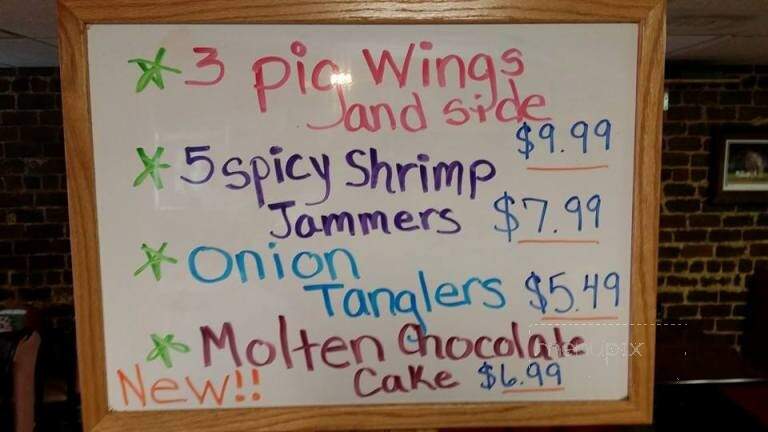 * 3 Pig Wings
and side
$9.99
* 5 spicy Shrimp
Jammers $7.99
* Onion
Tanglers $5.49
* Molten Chocolate
Cake $6.99
New!!
menupix